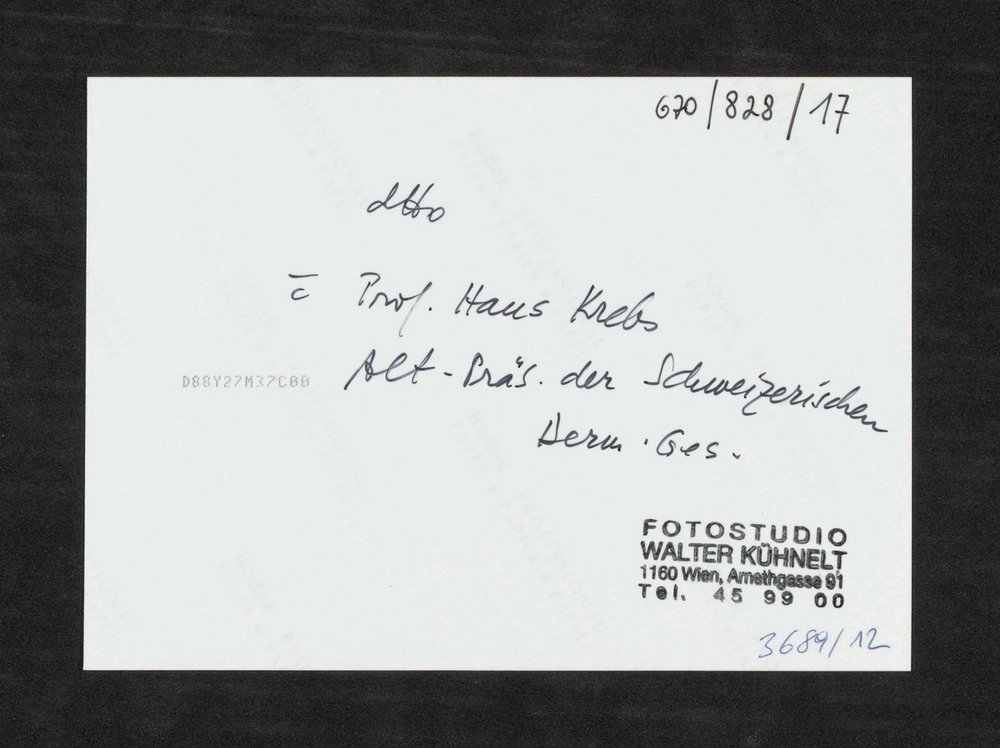 670/828/17
dtto
c̄ Prof. Hans Krebs
D88Y27M37C00
Alt-Präs. der Schweizerischen
Derm. Ges.
FOTOSTUDIO
WALTER KÜHNELT
1160 Wien, Arnethgasse 91
Tel. 45 99 00
3689/12
Kodak
PROFESSIONAL
PAPER
PAPIER
PAPEL